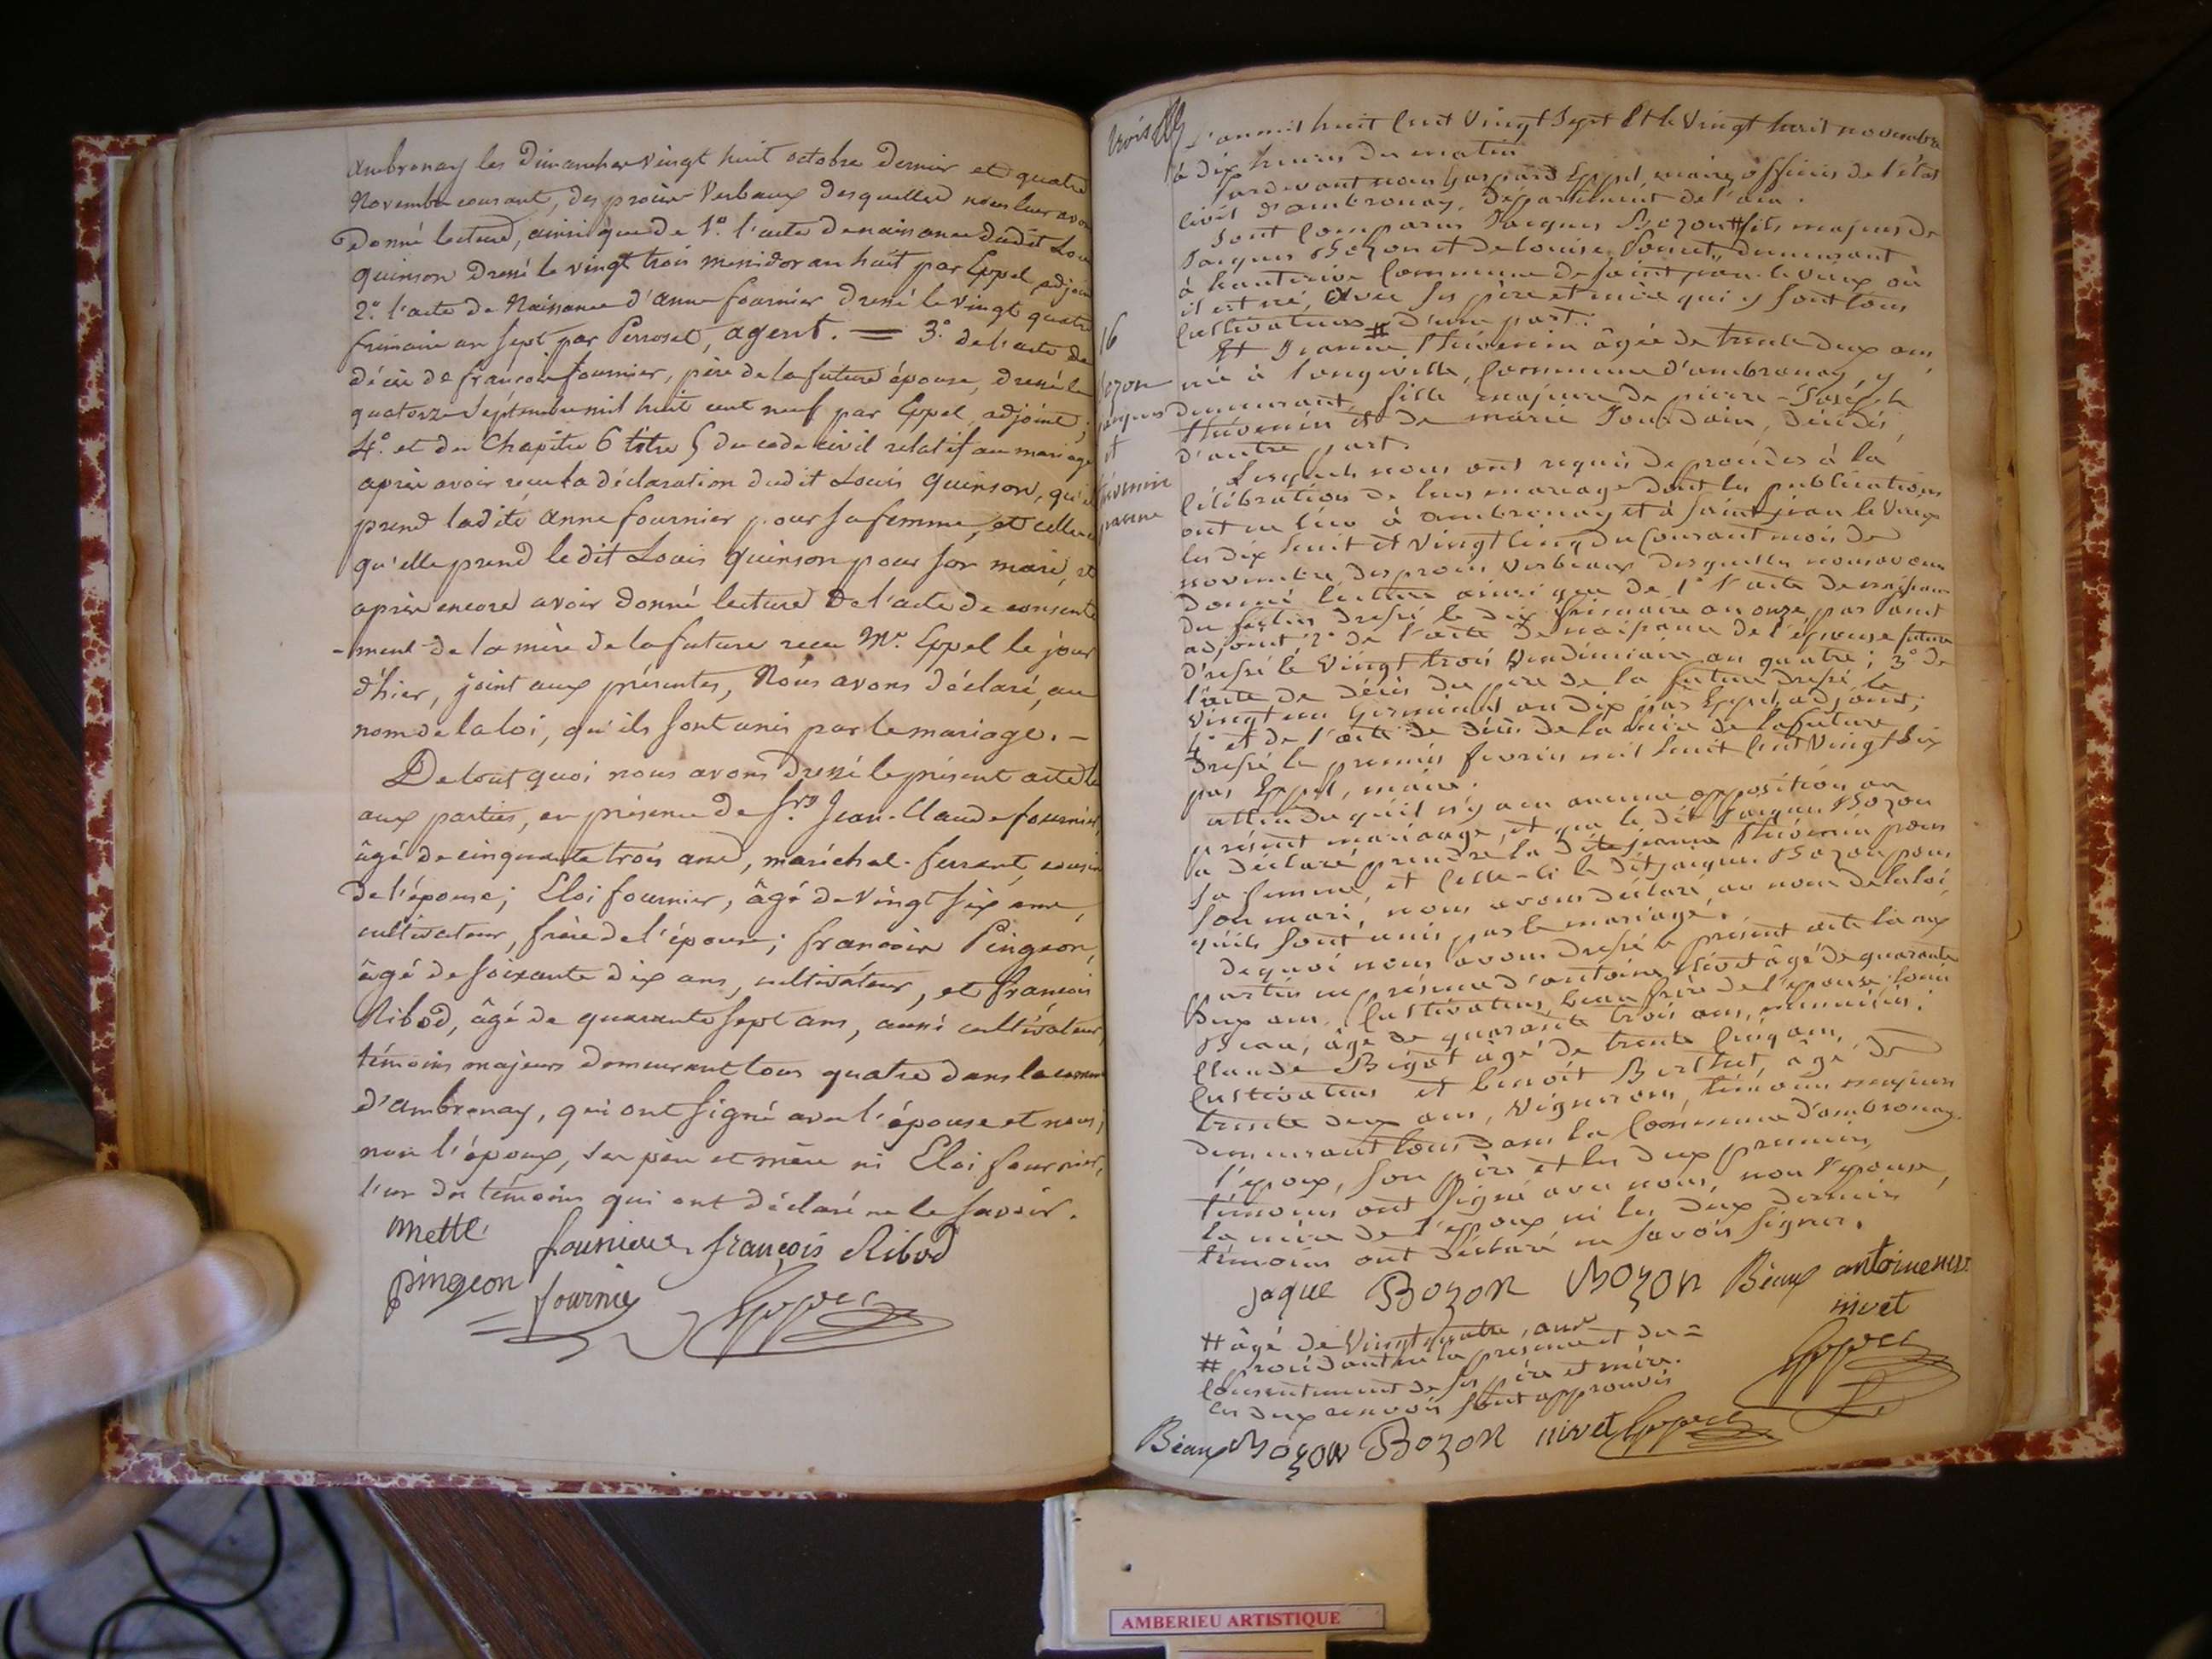 ambronay les dimanches vingt huit octobre dernier et quatre
Novembre courant, des procès-verbaux desquelles nous leur avons
Donné lecture, ainsi que de 1º. l'acte de naissance dudit Lou
quinson dressé le vingt trois messidor an huit par Eppel, adjoin
2º. l'acte de Naissance d'anne fournier dressé le vingt quatre
frimaire an sept par Perrosel, agent. = 3º. de l'acte de
décès de françois fournier, père de la future épouse, dressé le
quatorze Septembre mil huit cent neuf par Eppel, adjoint;
4º. et du Chapitre 6 titre 5 du code civil relatif au mariage
après avoir reçu la déclaration dudit Louis quinson, qu'il
prend ladite anne fournier pour sa femme, et celle-ci
qu'elle prend le dit Louis quinson pour son mari, et
après encore avoir donné lecture de l'acte de consente
-ment de la mère de la future reçu Mr. Eppel le jour
d'hier, joint aux présentes, Nous avons déclaré, au
nom de la loi, qu'ils sont unis par le mariage. -
De tout quoi nous avons dressé le présent acte lu
aux parties, en présence de Srs Jean-Claude fournier,
âgé de cinquante trois ans, maréchal-ferrant, cousin
de l'épouse; Eloi fournier, âgé de vingt six ans,
cultivateur, frère de l'épouse; francois Pingeon,
âgé de soixante dix ans, cultivateur, et francois
Ribod, âgé de quarante sept ans, aussi cultivateur,
témoins majeurs demeurant tous quatre dans la comm
d'ambronay, qui ont signé avec l'épouse et nous;
non l'époux, ses père et mère ni Eloi fournier,
l'un des témoins qui ont déclaré ne le savoir.
fournier françois Ribod
pingeon fournier Eppel
trois
L'an mil huit cent vingt sept et le vingt huit novembre
à dix heures du matin
Pardevant nous Gaspard Eppel, maire, officier de l'état
civil d'ambronay, département de l'ain.
Sont comparus Jacques Bozon # fils majeur de
Jacques Bozon et de Louise demeurant
à hauterive commune de saint jean-le-vieux où
il est né avec ses père et mère qui y sont tous
cultivateurs # d'une part.
16
Et Jeanne Thévenin âgée de trente deux ans
Bozon
née à Longeville, commune d'ambronay, y
jacques
demeurant, fille majeure de pierre-Joseph
et
Thévenin et de marie Jourdain, décédés,
d'autre part.
Thévenin
jeanne
Lesquels nous ont requis de procéder à la
célébration de leur mariage dont les publications
ont eu lieu à ambronay et à saint jean le vieux
les dix huit et vingt cinq du courant mois de
novembre, des procès verbaux desquelles nous avons
donné lecture ainsi que de 1º l'acte de naissance
du futur dressé le dix frimaire an onze par
adjoint; 2º de l'acte de naissance de l'épouse future
dressé le vingt trois vendémiaire an quatre; 3º de
l'acte de décès du père de la future dressé le
vingt un germinal an dix par Eppel, adjoint;
4º et de l'acte de décès de la mère de la future
dressé le premier fevrier mil huit cent vingt six
par Eppel, maire.
attendu qu'il n'y a eu aucune opposition au
présent mariage, et que le dit Jacques Bozon
a déclaré prendre la dite jeanne Thévenin pour
sa femme, et celle-ci le dit jacques Bozon pour
son mari, nous avons déclaré, au nom de la loi,
qu'ils sont unis par le mariage.
de quoi nous avons dressé le présent acte lu aux
parties en présence d'antoine Nivet âgé de quarante
deux ans, cultivateur, beau frère de l'épouse, louis
Beau, âgé de quarante trois ans,
claude Bigot âgé de trente cinq ans,
cultivateur et benoît Berthet, âgé de
trente deux ans, vigneron, témoins majeurs
demeurant tous dans la commune d'ambronay.
l'époux, son père et les deux premiers
témoins ont signé avec nous, non l'épouse,
la mère de l'époux ni les deux derniers
témoins ont déclaré ne savoir signer.
jaque Bozon Bozon Béaux antoine
nivet
# âgé de vingt quatre ans
# procédant en la présence et du =
consentement de ses père et mère.
les deux renvois sont approuvés
Eppel
Béaux Bozon Bozon nivet Eppel
AMBERIEU ARTISTIQUE